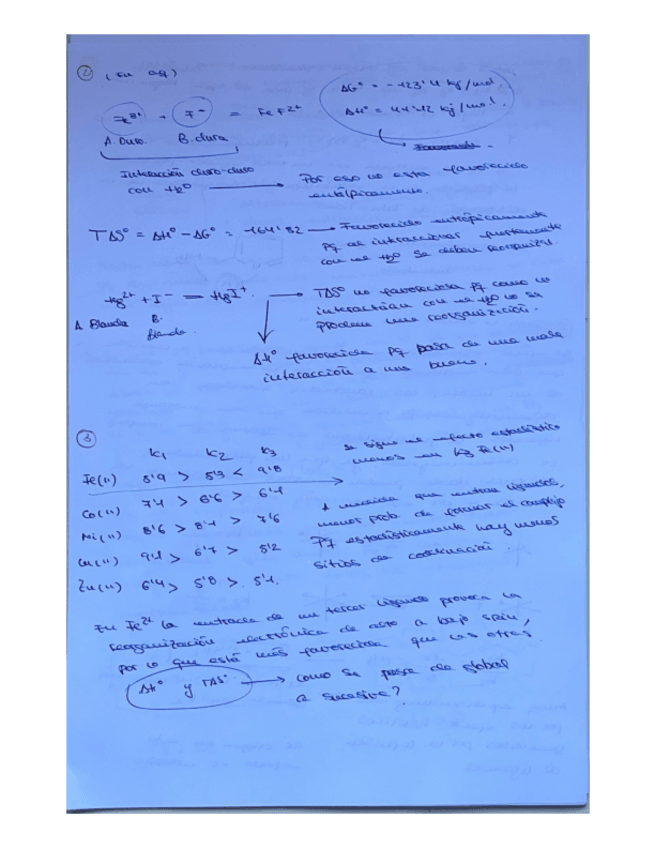 ② (en aq)
Fe³⁺ + F⁻ = FeF²⁺
ΔG° = -123'4 kJ/mol
ΔH° = 44'12 kJ/mol.
A. Duro. B. dura
Interacción duro-duro
con H₂O → Por eso no está favorecido
entálpicamente.
TΔS° = ΔH° - ΔG° = 164'82 → Favorecido entrópicamente
Pq al interaccionar fuertemente
con el H₂O se deben reorganizar.
Hg²⁺ + I⁻ = HgI⁺. → TΔS° no favorecida Pq como no
interactúan con el H₂O no se
produce una reorganización.
A. Blanda B.
Blanda.
ΔH° favorecida Pq pasa de una mala
interacción a una buena.
③
K₁ K₂ K₃
Fe(II) 5'9 > 5'3 < 9'8
Co(II) 7'1 > 6'6 > 6'1
Ni(II) 8'6 > 8'1 > 7'6
Cu(II) 9'1 > 6'7 > 5'2
Zn(II) 6'4 > 5'8 > 5'1.
Se sigue el efecto estadístico
menos en K₃ Fe(II)
A medida que entran ligandos,
menor prob. de formar el complejo
Pq estadísticamente hay menos
sitios de coordinación.
En Fe²⁺ la entrada de un tercer ligando provoca la
reorganización electrónica de alto a bajo spin,
por lo que está más favorecida que los otros.
ΔH° y TΔS° → como se pasa de global
a sucesiva?